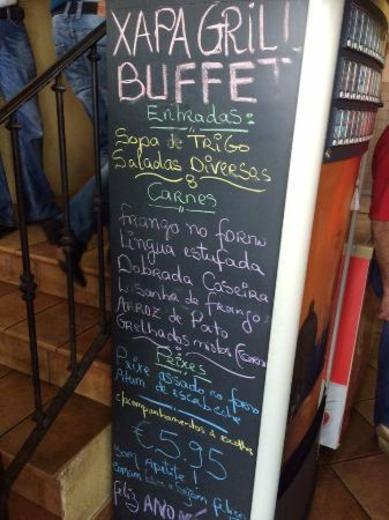 XAPA GRILL
BUFFET
Entradas:
Sopa de TRIGO
Saladas Diversas
Carnes
Frango no forno
Língua estufada
Dobrada Caseira
Lasanha de frango
ARROZ de Pato
Grelhados mistos
Peixes
Peixe assado no forno
Atum de escabeche
c/acompanhamentos à escolha
€5.95
Bom Apetite!
feliz ANO